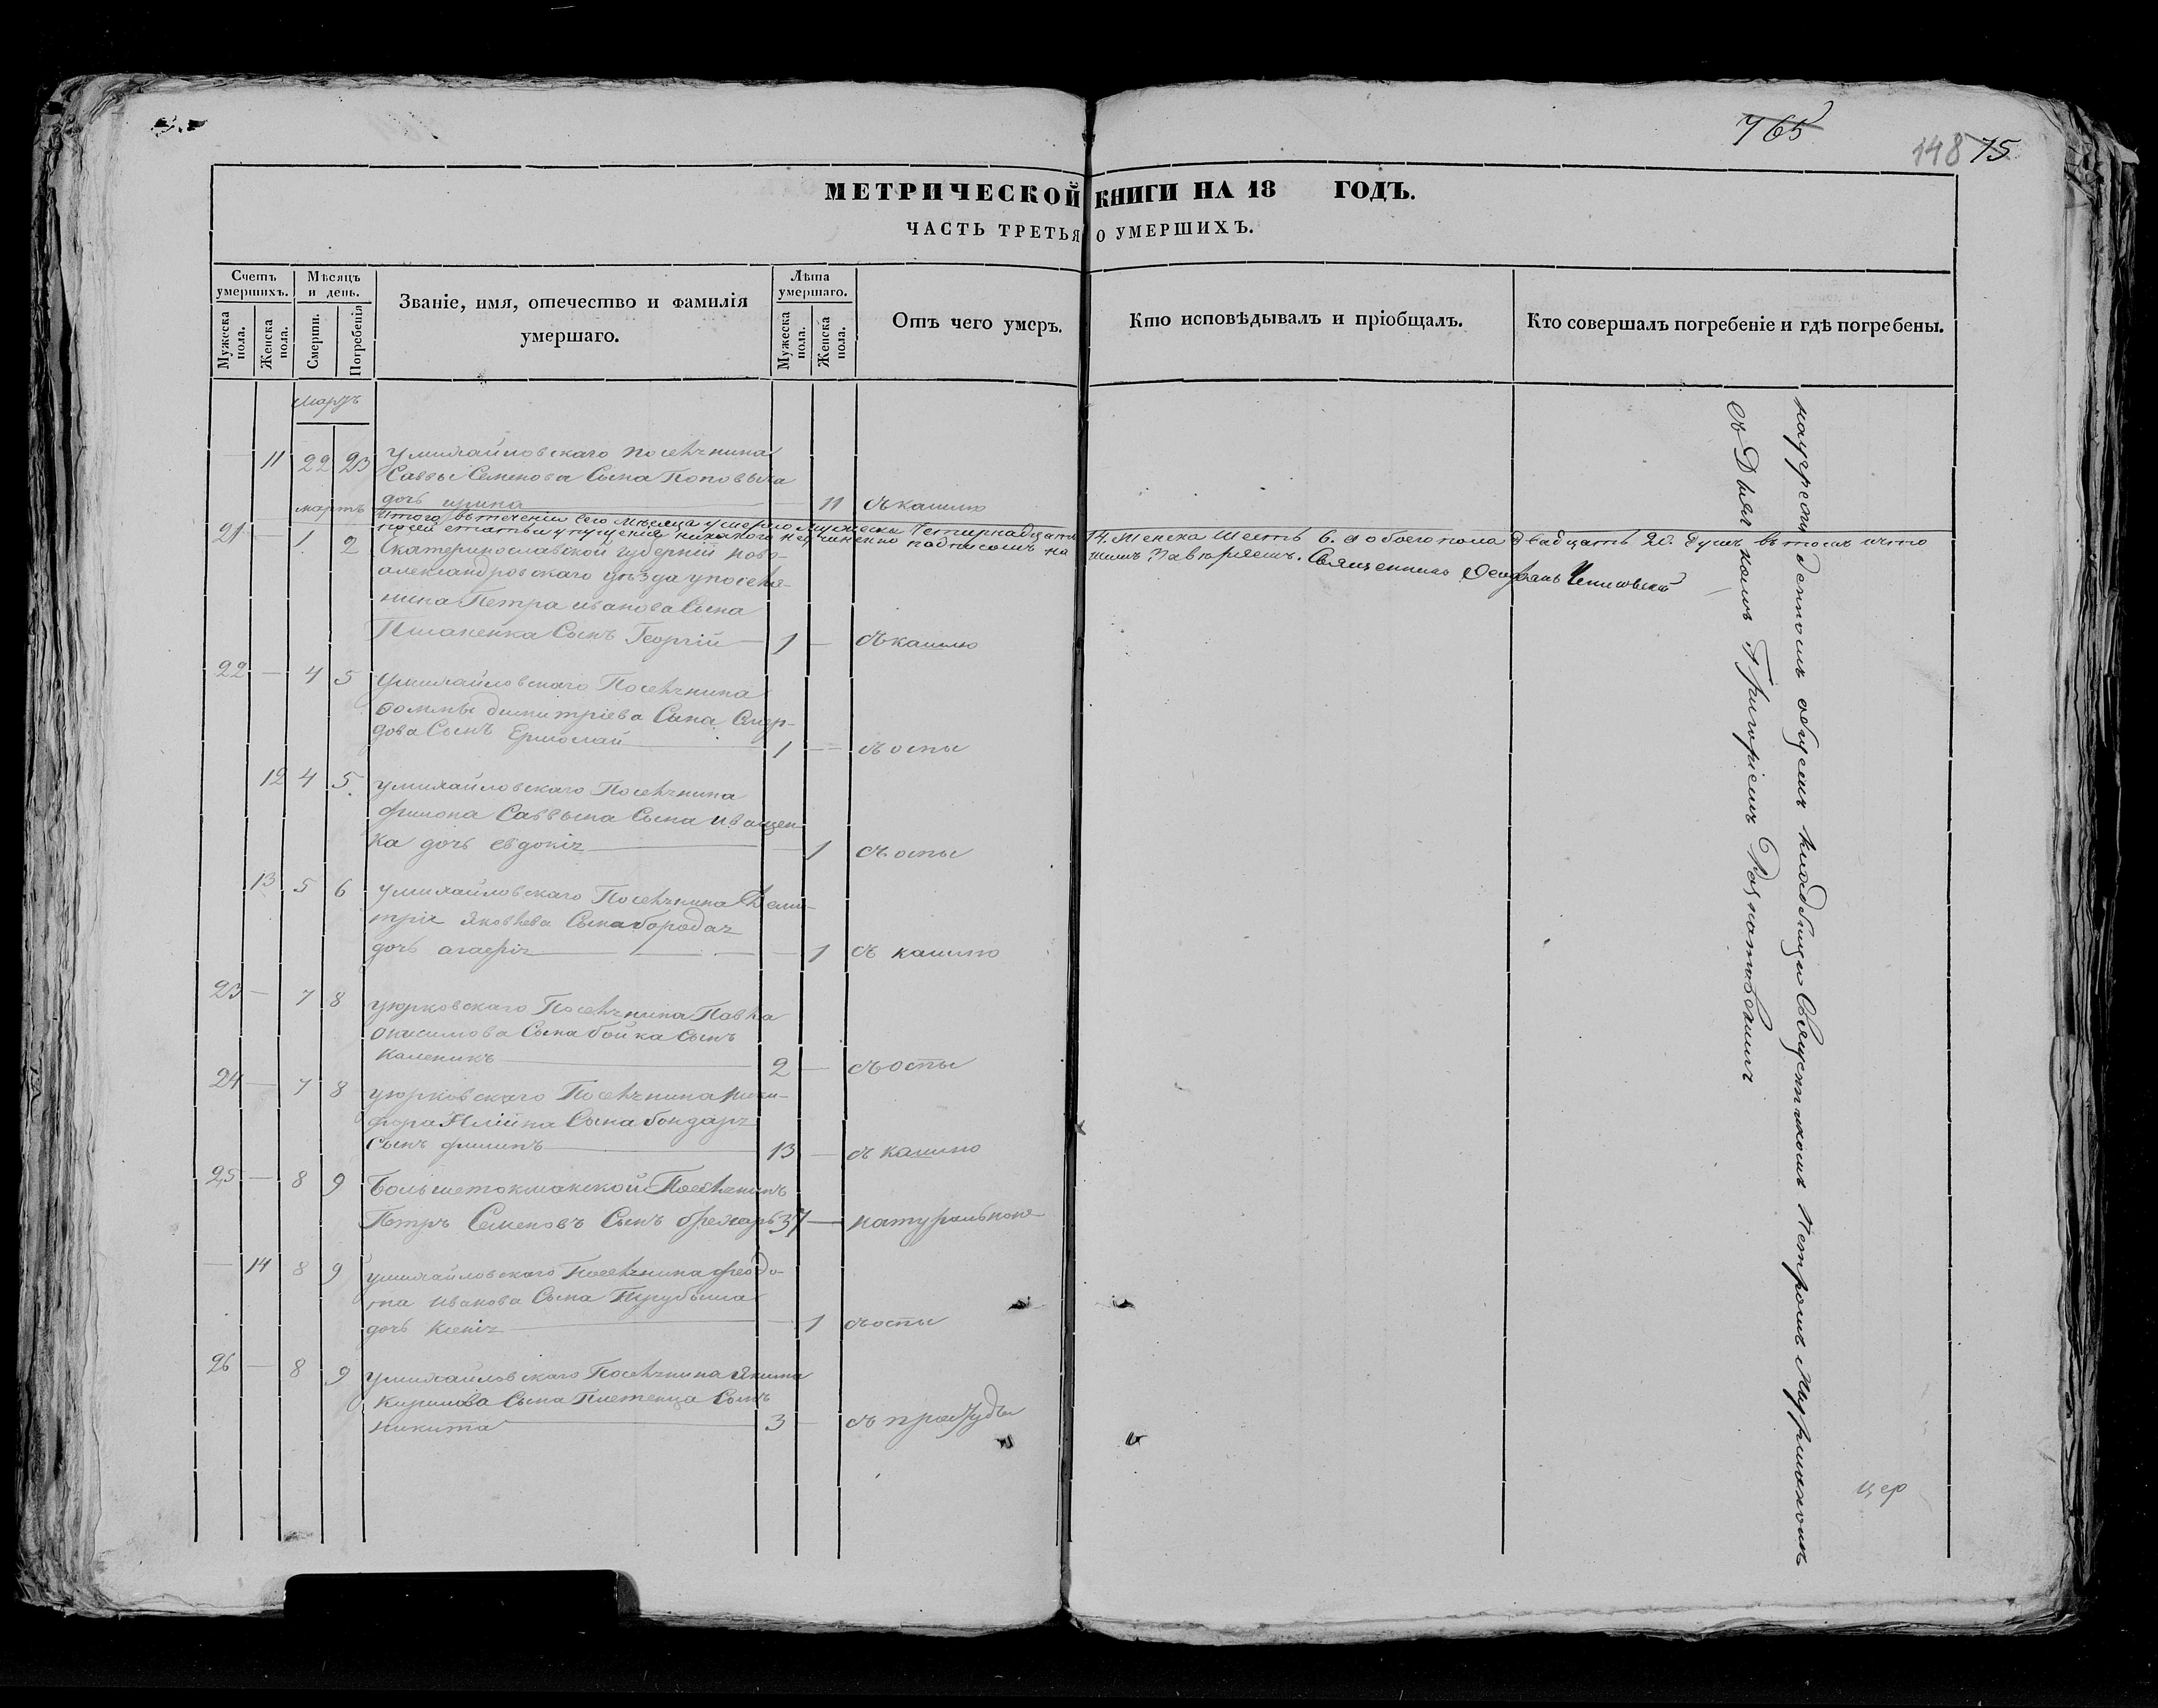 765
148 75
МЕТРИЧЕСКОЙ КНИГИ НА 18 ГОДЪ.
ЧАСТЬ ТРЕТЬЯ О УМЕРШИХЪ.
Счетъ умершихъ.
Мужеска пола.
Женска пола.
Мѣсяцъ и день.
Смерти.
Погребенія
Званіе, имя, отечество и фамилія
умершаго.
Лѣта умершаго.
Мужеска пола.
Женска пола.
Отъ чего умеръ.
Кто исповѣдывалъ и пріобщалъ.
Кто совершалъ погребеніе и гдѣ погребены.
Мартъ
11 22 23 умихайловскаго поселянина
Саввы Семенова Сына Поповича
дочь ирина 11 съ кашлю
мартъ
Итого въ теченіи сего мѣсяца умерло мужеска Четирнадцать 14. женска шесть 6. а обоего пола двадцать 20. душъ въ томъ что
по сей статьи упущенія никакого неучиненно подписомъ нашимъ Завѣряемъ. Священникъ Феофанъ
21 1 2 Екатеринославской губерніи ново-
александровскаго уѣзда упоселя-
нина Петра иванова Сына
Сынъ Георгій 1 съ кашлю
22 4 5 Умихайловскаго Поселянина
Фоммы димитріева Сына
Сынъ Ермолай 1 съ оспы
12 4 5 умихайловскаго Поселянина
филона Саввына Сына иващен-
ка дочь евдокія 1 съ оспы
13 5 6 умихайловскаго Поселянина Дими-
трія Яковлева Сына бородая
дочь агафія 1 съ кашлю
23 7 8 уюрковскаго Поселянина Павла
Сына бойка Сынъ
Каленикъ 2 съ оспы
24 7 8 уюрковскаго Поселянина ники-
фора Иліина Сына бондаря
Сынъ филипъ 13 съ кашлю
25 8 9 Большетокмакской Поселянинъ
Петръ Семеновъ Сынъ 37 натуральною
14 8 9 умихайловскаго Поселянина феодо-
та иванова Сына Трубына
дочь Ксенія 1 съ оспы
26 8 9 умихайловскаго Поселянина Якима
Кирилова Сына Плетенца Сынъ
никита 3 съ простуды
на общемъ кладбищи Священникомъ Петромъ
съ Дьячкомъ Григоріемъ